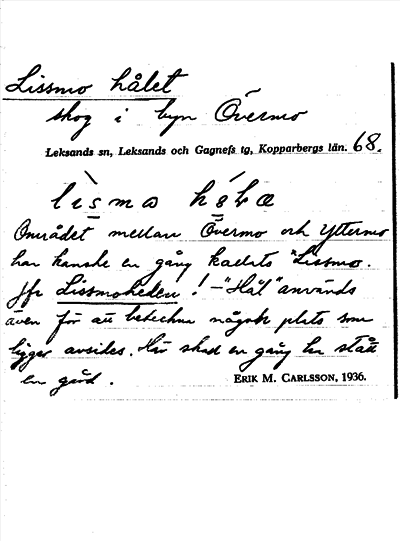 Lissmo hålet
skog i byn Övermo
Leksands sn, Leksands och Gagnefs tg, Kopparbergs län. 68.
Området mellan Övermo och Yttermo
har kanske en gång kallats "Lissmo.
Jfr Lissmoheden! - "Hål" används
även för att beteckna någon plats som
ligger avsides. Här skall en gång ha stått
en gård.
ERIK M. CARLSSON, 1936.